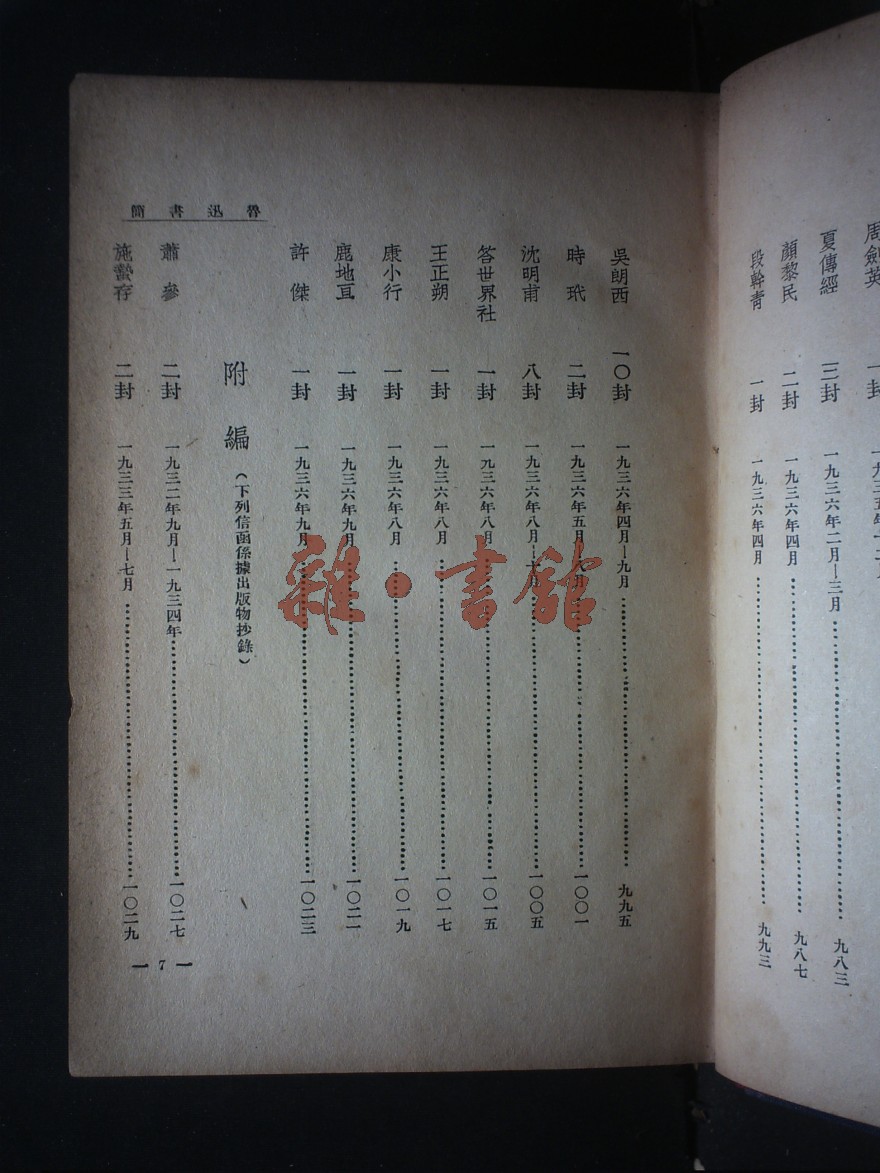 周劍英 一封
夏傳經 三封 一九三六年二月—三月 九八三
顏黎民 二封 一九三六年四月 九八七
段幹青 一封 一九三六年四月 九九三
魯迅書簡
吳朗西 一〇封 一九三六年四月—九月 九九五
時玳 二封 一九三六年五月—八月 一〇〇一
沈明甫 八封 一九三六年八月—十月 一〇〇五
答世界社 一封 一九三六年八月 一〇一五
王正朔 一封 一九三六年八月 一〇一七
康小行 一封 一九三六年八月 一〇一九
鹿地亘 一封 一九三六年九月 一〇二一
許傑 一封 一九三六年九月 一〇二三
附編(下列信函係據出版物抄錄)
蕭參 二封 一九三二年九月—一九三四年 一〇二七
施蟄存 二封 一九三三年五月—七月 一〇二九
— 7 —
雜·書館